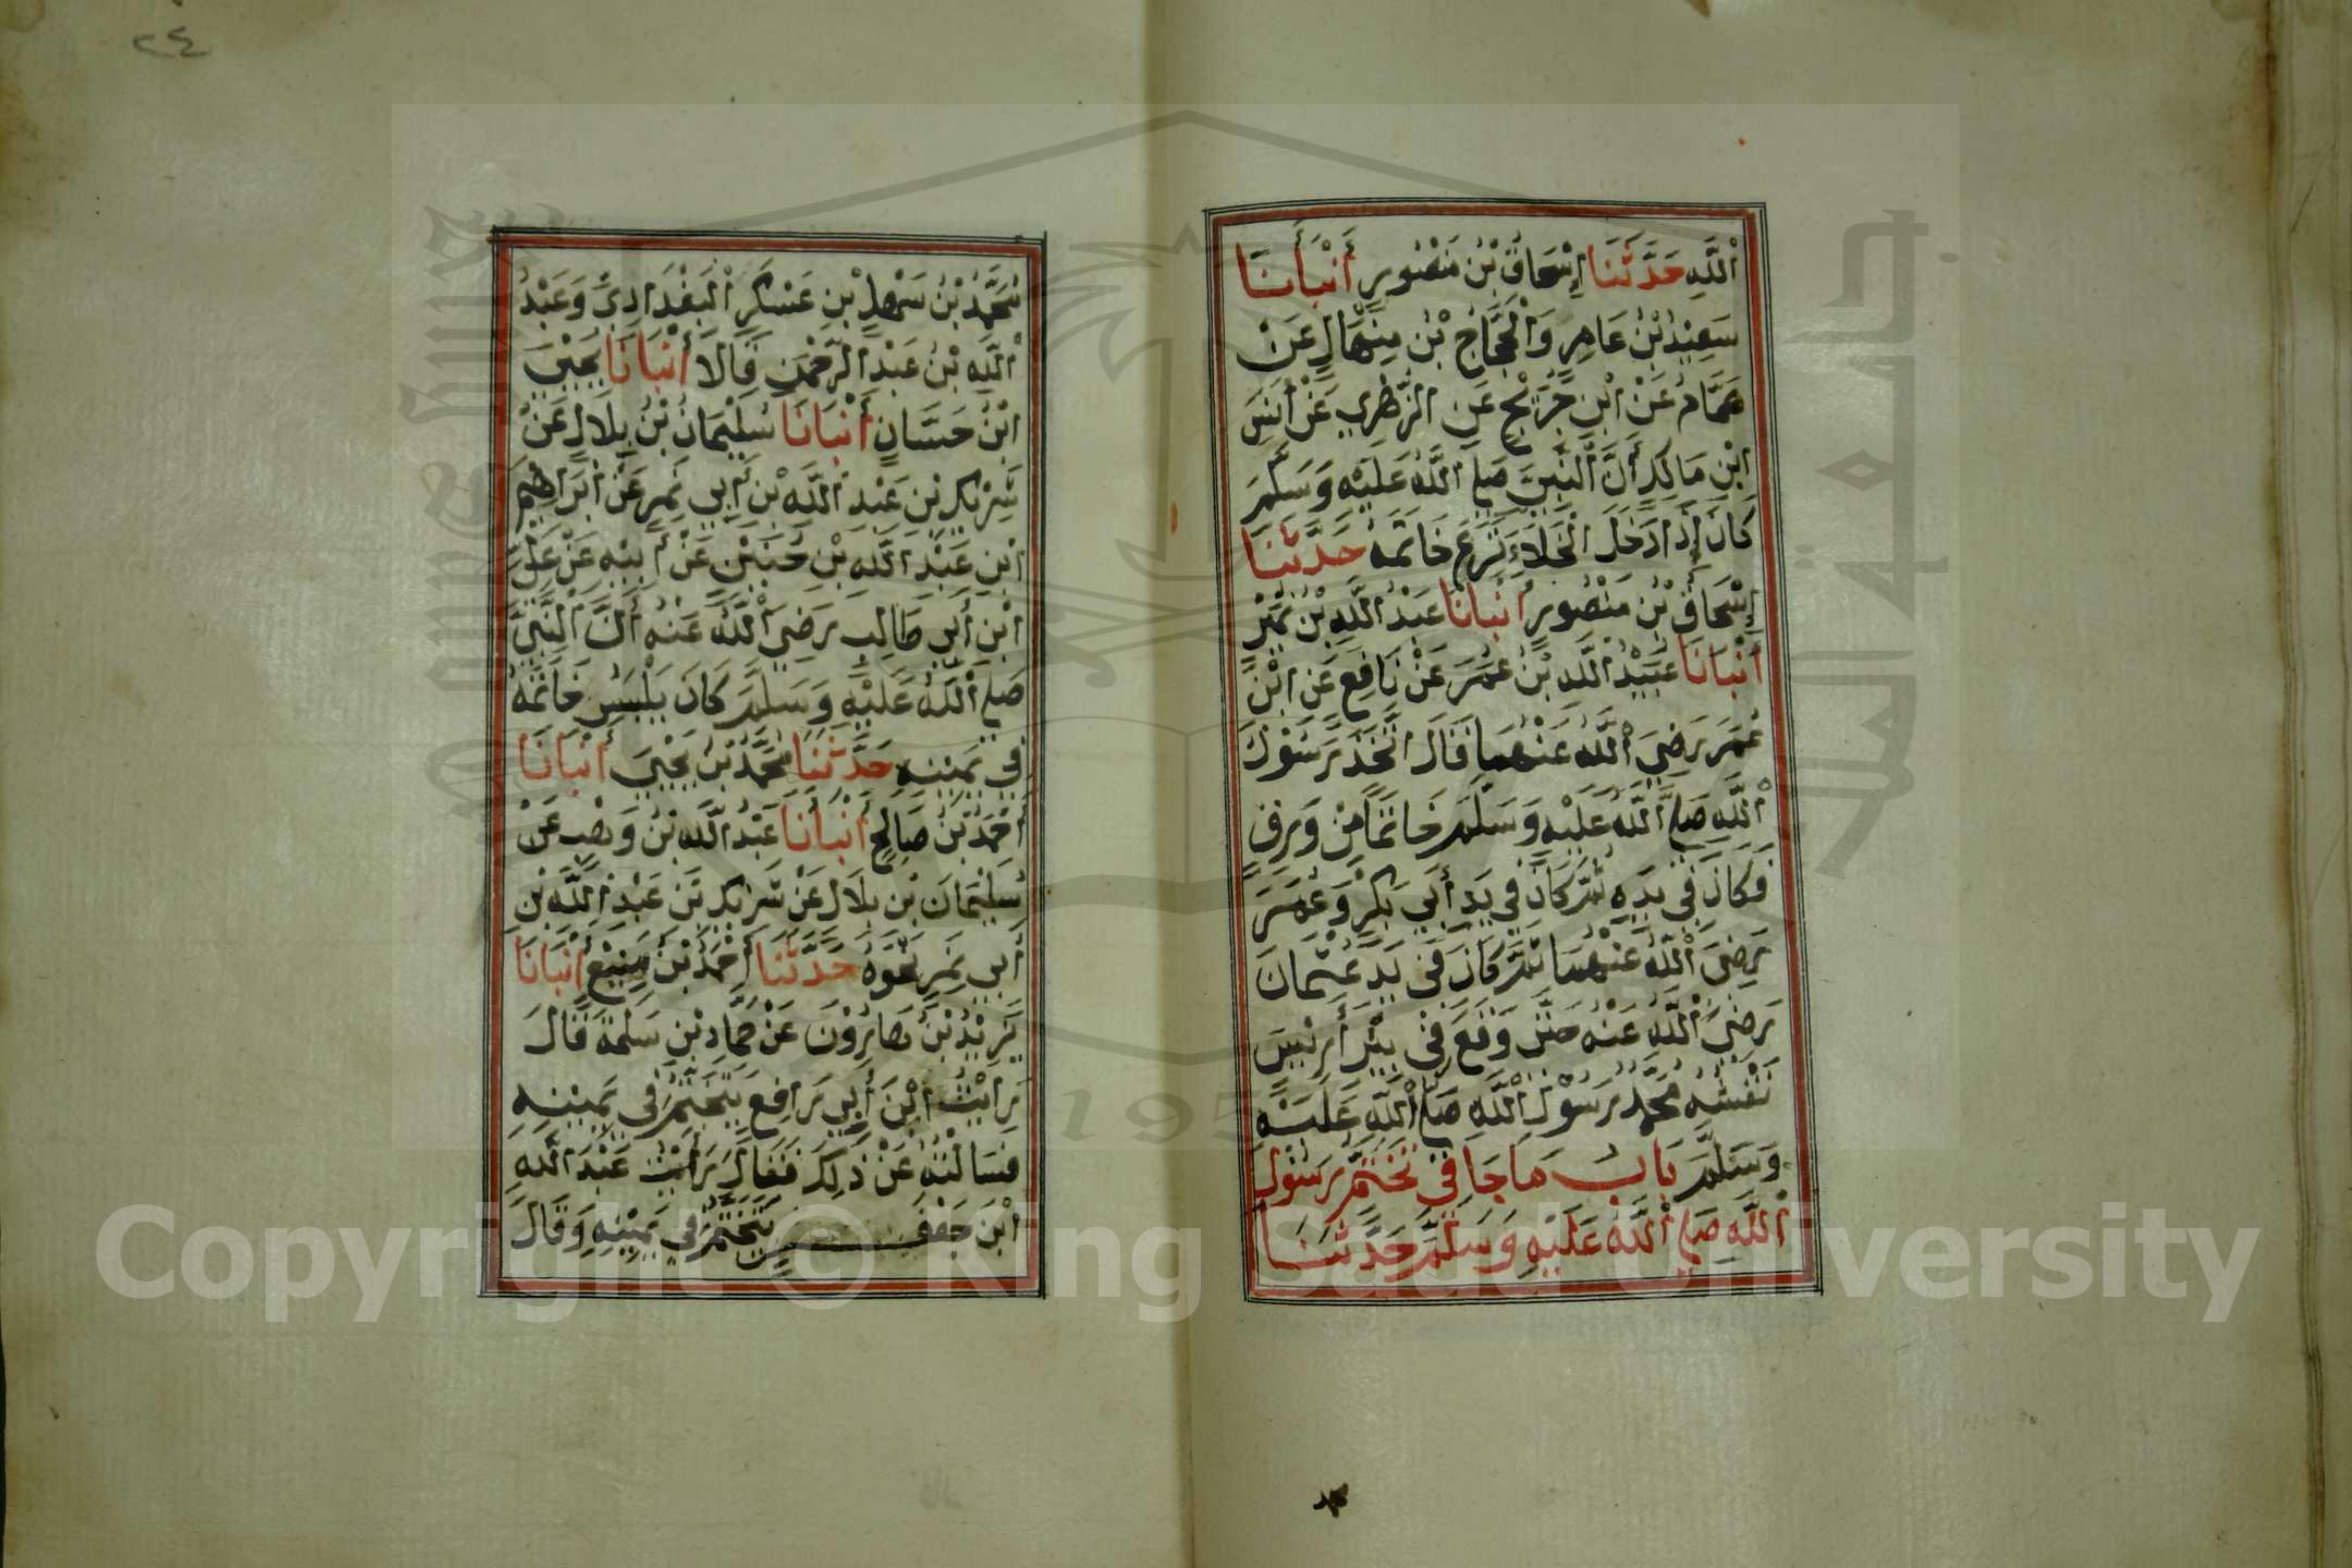 اللَّهِ حَدَّثَنَا إِسْحَاقُ بْنُ مَنْصُورٍ أَنْبَأَنَا
سَعِيْدُ بْنُ عَامِرٍ وَالْحَجَّاجُ بْنُ مِنْهَالٍ عَنْ
هَمَّامٍ عَنْ ابْنِ جُرَيْجٍ عَنِ الزُّهْرِيِ عَنْ أَنَسِ
ابْنِ مَالِكٍ أَنَّ النَّبِيَّ صَلَّى اللَّهُ عَلَيْهِ وَسَلَّمَ
كَانَ إِذَا دَخَلَ الْخَلَاءَ نَزَعَ خَاتَمَهُ حَدَّثَنَا
إِسْحَاقُ بْنُ مَنْصُورٍ أَنْبَانَا عَبْدُ اللَّهِ بْنُ نُمَيْرٍ
أَنْبَانَا عُبَيْدُ اللَّهِ بْنُ عُمَرَ عَنْ نَافِعٍ عَنِ ابْنِ
عُمَرَ رَضِيَ اللَّهُ عَنْهُمَا قَالَ اتَّخَذَ رَسُوْلُ
اللَّهِ صَلَّى اللَّهُ عَلَيْهِ وَسَلَّمَ خَاتَمًا مِنْ وَرِقٍ
فَكَانَ فِي يَدِهِ ثُمَّ كَانَ فِي يَدِ أَبِي بَكْرٍ وَعُمَرَ
رَضِيَ اللَّهُ عَنْهُمَا ثُمَّ كَانَ فِي يَدِ عُثْمَانَ
رَضِيَ اللَّهُ عَنْهُ حَتَّى وَقَعَ فِي بِئْرِ أَرِيْسَ
نَقْشُهُ مُحَمَّدٌ رَسُوْلُ اللَّهِ صَلَّى اللَّهُ عَلَيْهِ
وَسَلَّمَ بَابُ مَا جَا فِي تَخَتُّمِ رَسُوْلِ
اللَّهِ صَلَّى اللَّهُ عَلَيْهِ وَسَلَّمَ حَدَّثَنَا
٢٤
مُحَمَّدُ بْنُ سَهْلِ بْنِ عَسْكَرٍ الْبَغْدَادِيُّ وَعَبْدُ
اللَّهِ بْنُ عَبْدِ الرَّحْمَنِ قَالَا أَنْبَانَا يَحْيَى
ابْنُ حَسَّانٍ أَنْبَانَا سُلَيْمَانُ بْنُ بِلَالٍ عَنْ
شَرِيْكِ بْنِ عَبْدِ اللَّهِ بْنِ أَبِي نَمِرٍ عَنْ إِبْرَاهِيمَ
ابْنِ عَبْدِ اللَّهِ بْنِ حُنَيْنٍ عَنْ أَبِيْهِ عَنْ عَلِيِّ
ابْنِ أَبِي طَالِبٍ رَضِيَ اللَّهُ عَنْهُ أَنَّ النَّبِيَّ
صَلَّى اللَّهُ عَلَيْهِ وَسَلَّمَ كَانَ يَلْبَسُ خَاتَمَهُ
فِي يَمِيْنِهِ حَدَّثَنَا مُحَمَّدُ بْنُ يَحْيَى أَنْبَانَا
أَحْمَدُ بْنُ صَالِحٍ أَنْبَأَنَا عَبْدُ اللَّهِ بْنُ وَهْبٍ عَنْ
سُلَيْمَانَ بْنِ بِلَالٍ عَنْ شَرِيْكِ بْنِ عَبْدِ اللَّهِ بْنِ
أَبِي نَمِرٍ نَحْوَهُ حَدَّثَنَا أَحْمَدُ بْنُ مَنِيْعٍ أَنْبَانَا
يَزِيْدُ بْنُ هَارُوْنَ عَنْ حَمَّادِ بْنِ سَلَمَةَ قَالَ
رَأَيْتُ ابْنَ أَبِي رَافِعٍ يَتَخَتَّمُ فِي يَمِيْنِهِ
فَسَأَلْتُهُ عَنْ ذَلِكَ فَقَالَ رَأَيْتُ عَبْدَ اللَّهِ
ابْنَ جَعْفَرٍ يَتَخَتَّمُ فِي يَمِيْنِهِ وَقَالَ
Copyright © King Saud University
195